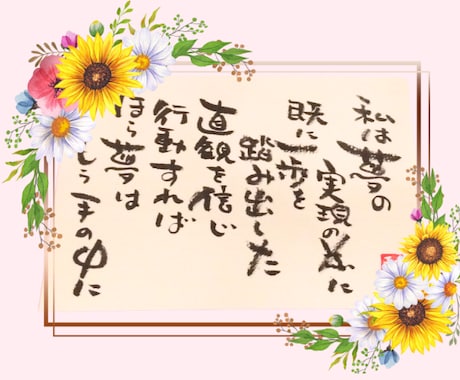 私は夢の
実現の為に
既に一歩を
踏み出した
直観を信じ
行動すれば
ほら夢は
もう手の中に